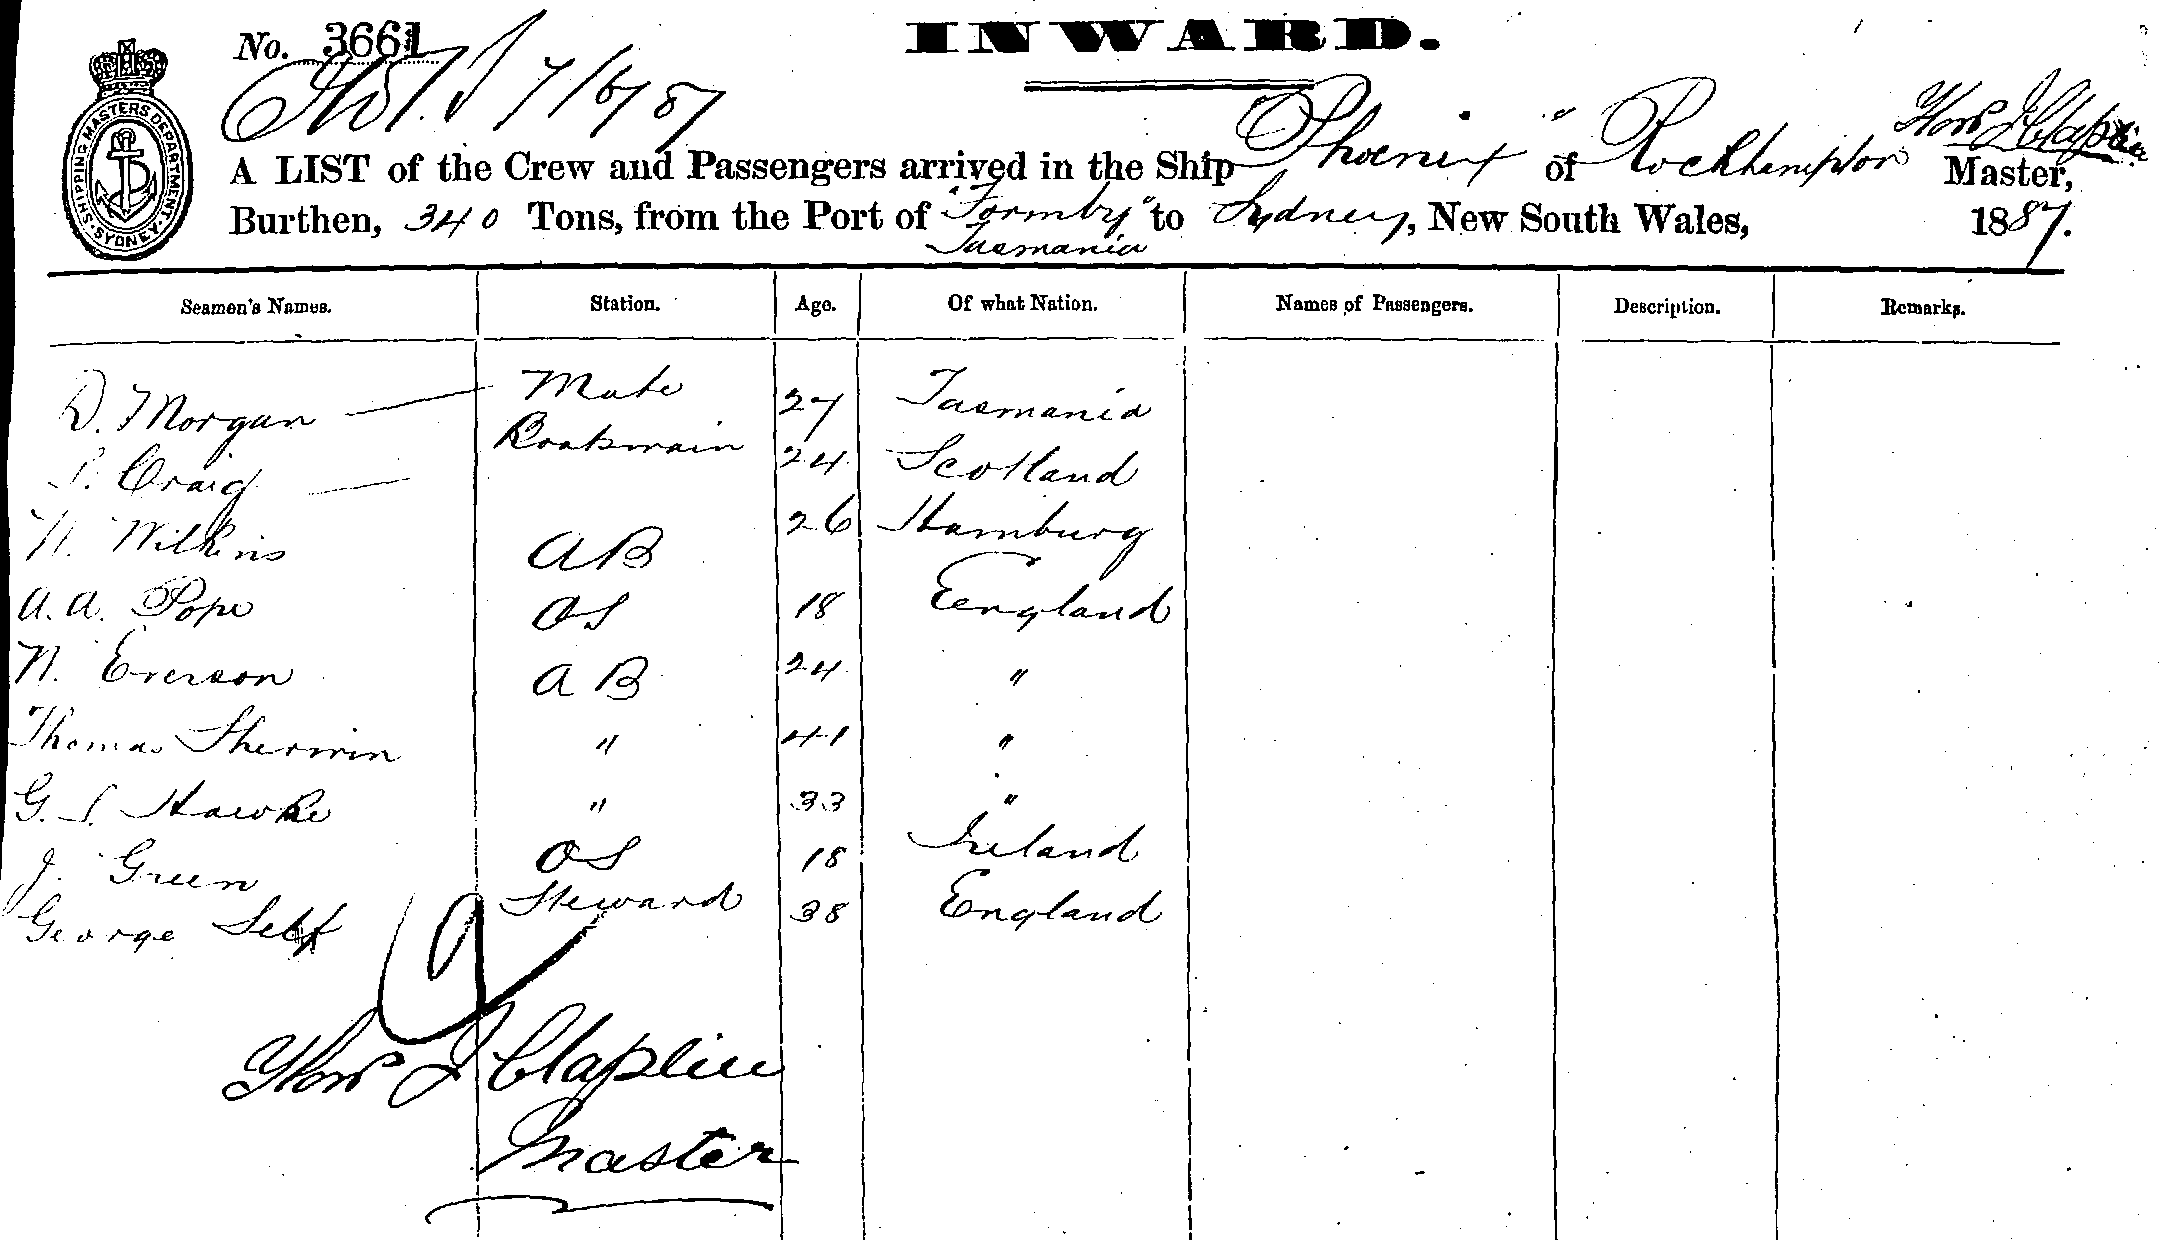 INWARD.
No. 3661
7/6/87
SHIPPING MASTERS DEPARTMENT. SYDNEY.
Thos J Claplin
A LIST of the Crew and Passengers arrived in the Ship "Phoenix" of Rockhampton Master,
Burthen, 340 Tons, from the Port of "Formby" to Sydney, New South Wales, 1887.
Tasmania
Seamen's Names. Station. Age. Of what Nation. Names of Passengers. Description. Remarks.
D. Morgan Mate 27 Tasmania
Craig Boatswain 24 Scotland
Wilkins AB 26 Hamburg
A. A. Pope OS 18 England
N. Everson AB 24 "
Thomas Sherwin " 41 "
G. S. Hawke " 33 "
J. Green OS 18 Ireland
George Self Steward 38 England
9
Thos J Claplin
Master